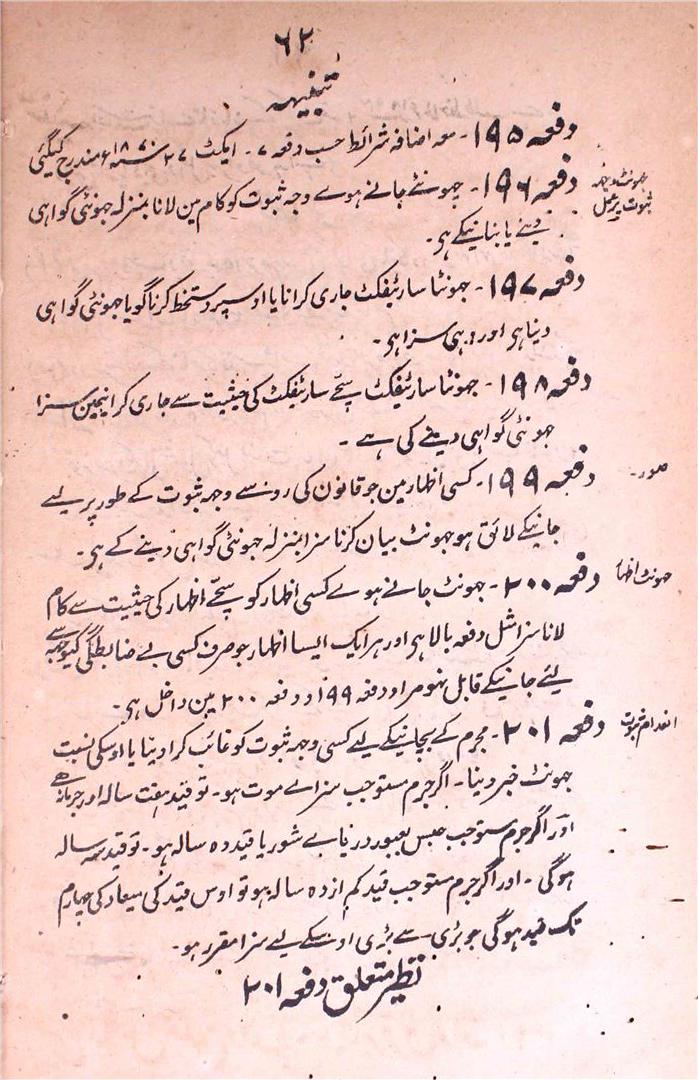 ۶۲
تنبیہہ
دفعہ ۱۹۵- معہ اضافہ شرائط حسب دفعہ ۷- ایکٹ ۲۷ سنہ ۱۸۷۰ء مندرج کیگئی
جھونٹ وجہ ثبوت پر عمل
دفعہ ۱۹۶- جھونٹے جانے ہوے وجہ ثبوت کو کام مین لانا بمنزلہ جھونٹی گواہی
دینے یا بنانیکے ہی۔
دفعہ ۱۹۷- جھونٹا سارٹیفکٹ جاری کرانا یا اوسپر دستخط کرنا گویا جھونٹی گواہی
دینا ہی اور وہی سزا ہی۔
دفعہ ۱۹۸- جھونٹا سارٹیفکٹ سچے سارٹیفکٹ کی حیثیت سے جاری کرانیمین سزا
جھونٹی گواہی دینے کی ہے ۔
دفعہ ۱۹۹- کسی اظہار مین جو قانون کی روسے وجہ ثبوت کے طور پر لیے
جانیکے لائق ہو جھونٹ بیان کرنا سزا بمنزلہ جھونٹی گواہی دینے کے ہی۔
جھونٹ اظہا
دفعہ ۲۰۰- جھونٹ جانے ہوے کسی اظہار کو سچے اظہار کی حیثیت سے کام
لانا سزا مثل دفعہ بالا ہی اور ہر ایک ایسا اظہار جو صرف کسی بے ضابطگی کیوجہ سے
لیئے جانیکے قابل نہو مراد دفعہ ۱۹۹ و دفعہ ۲۰۰ مین داخل ہی۔
انعدام ثبوت
دفعہ ۲۰۱- مجرم کے بچانیکے لیے کسی وجہ ثبوت کو غائب کرا دینا یا اوسکی نسبت
جھونٹ خبر دینا- اگر جرم مستوجب سزاے موت ہو- تو قید ہفت سالہ اور جرمانہ ہے
اور اگر جرم مستوجب حبس بعبور دریاے شور یا قید دہ سالہ ہو- تو قید سہ سالہ
ہوگی- اور اگر جرم مستوجب قید کم از دہ سالہ ہو تو اوس قید کی میعاد کی چہارم
تک قید ہوگی جو بڑی سے بڑی اوسکے لیے سزا مقرر ہو۔
نظیر متعلق دفعہ ۲۰۱